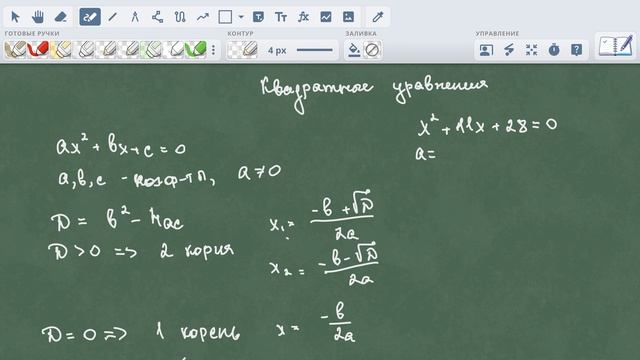 ГОТОВЫЕ РУЧКИ
КОНТУР
ЗАЛИВКА
УПРАВЛЕНИЕ
4 px
Квадратные уравнения
ax² + bx + c = 0
a, b, c - коэф-ты, a ≠ 0
D = b² - 4ac
D > 0 => 2 корня
x₁ = (-b + √D) / 2a
x₂ = (-b - √D) / 2a
D = 0 => 1 корень x = -b / 2a
x² + 11x + 28 = 0
a =